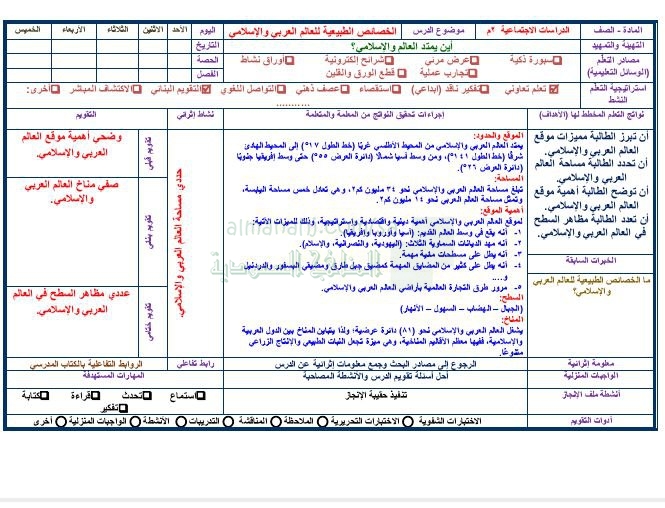 المادة - الصف
الدراسات الاجتماعية ٢م
موضوع الدرس
الخصائص الطبيعية للعالم العربي والإسلامي
اليوم
الأحد
الاثنين
الثلاثاء
الأربعاء
الخميس
التهيئة والتمهيد
أين يمتد العالم والإسلامي؟
التاريخ
مصادر التعلم
(الوسائل التعليمية)
سبورة ذكية
عرض مرئي
شرائح إلكترونية
أوراق نشاط
تجارب عملية
قطع الورق والفلين
الحصة
الفصل
استراتيجية التعلم
النشط
تعلم تعاوني
تفكير ناقد (ابداعي)
استقصاء
عصف ذهني
التواصل اللغوي
التقويم البنائي
الاكتشاف المباشر
أخرى:
............
نواتج التعلم المخطط لها (الأهداف)
إجراءات تحقيق النواتج من المعلمة والمتعلمة
نشاط إثرائي
التقويم
أن تبرز الطالبة مميزات موقع
العالم العربي والإسلامي.
أن تحدد الطالبة مساحة العالم
العربي والإسلامي.
أن توضح الطالبة أهمية موقع
العالم العربي والإسلامي.
أن تعدد الطالبة مظاهر السطح
في العالم العربي والإسلامي.
الخبرات السابقة
ما الخصائص الطبيعية للعالم العربي
والإسلامي؟
الموقع والحدود:
يمتد العالم العربي والإسلامي من المحيط الأطلسي غربًا (خط الطول ١٧°) إلى المحيط الهادئ
شرقًا (خط الطول ١٤١°)، ومن وسط آسيا شمالًا (دائرة العرض ٥٥°) حتى وسط إفريقيا جنوبًا
(دائرة العرض ٢٦°).
المساحة:
تبلغ مساحة العالم العربي والإسلامي نحو ٣٤ مليون كم٢، وهي تعادل خمس مساحة اليابسة،
وتمثل مساحة العالم العربي نحو ١٤ مليون كم٢.
أهمية الموقع:
لموقع العالم العربي والإسلامي أهمية دينية واقتصادية وإستراتيجية، وذلك للميزات الآتية:
١- أنه يقع في وسط العالم القديم: (آسيا وأوروبا وإفريقيا).
٢- أنه مهد الديانات السماوية الثلاث: (اليهودية، والنصرانية، والإسلام).
٣- أنه يطل على مسطحات مائية مهمة.
٤- أنه يطل على كثير من المضايق المهمة كمضيق جبل طارق ومضيقي البسفور والدردنيل
و....
٥- مرور طرق التجارة العالمية بأراضي العالم العربي والإسلامي.
السطح:
(الجبال – الهضاب – السهول – الأنهار)
المناخ:
يشغل العالم العربي والإسلامي نحو (٨١) دائرة عرضية؛ ولذا يتباين المناخ بين الدول العربية
والإسلامية، ففيها معظم الأقاليم المناخية، وهي ميزة تجعل النبات الطبيعية والإنتاج الزراعي
متنوعًا.
حددي مساحة العالم العربي والإسلامي.
تقويم قبلي
وضحي أهمية موقع العالم
العربي والإسلامي.
تقويم بنائي
صفي مناخ العالم العربي
والإسلامي.
تقويم ختامي
عددي مظاهر السطح في العالم
العربي والإسلامي.
almanahj.com/sa
المناهج السعودية
معلومة إثرائية
الرجوع إلى مصادر البحث وجمع معلومات إثرائية عن الدرس
رابط تفاعلي
الروابط التفاعلية بالكتاب المدرسي
الواجبات المنزلية
أحل أسئلة تقويم الدرس والأنشطة المصاحبة
المهارات المستهدفة
أنشطة ملف الإنجاز
تنفيذ حقيبة الإنجاز
استماع
تحدث
قراءة
كتابة
تفكير
أدوات التقويم
الاختبارات الشفوية
الاختبارات التحريرية
الملاحظة
المناقشة
التدريبات
الأنشطة
الواجبات المنزلية
أخرى